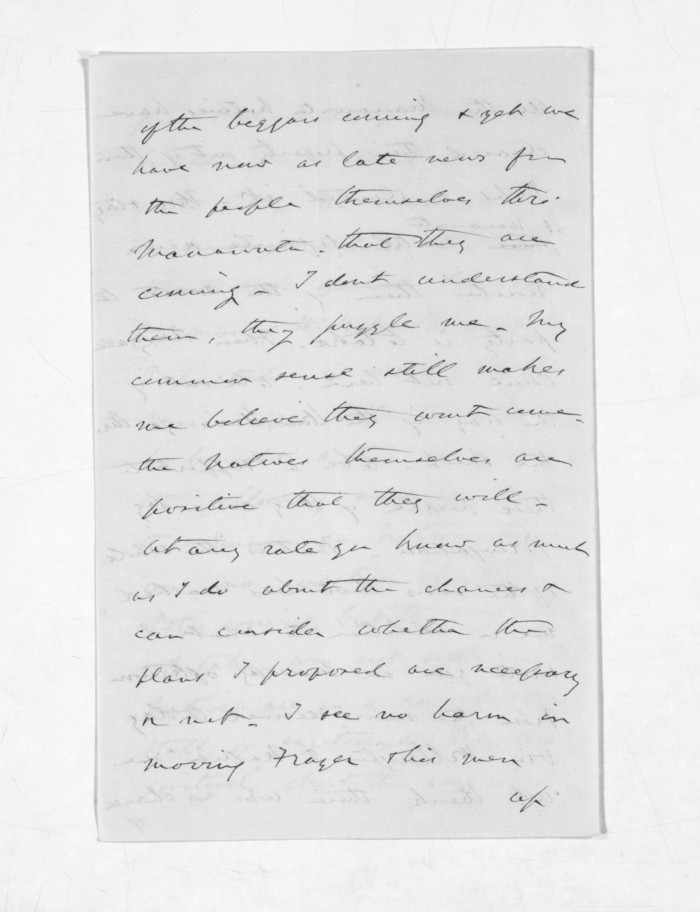 of the beggars coming & yet we
have now as late news from
the people themselves thro'
Manawatu - that they are
coming - I dont understand
them, they puzzle me - My
common sense still makes
me believe they wont come -
the natives themselves are
positive that they will -
At any rate you know as much
as I do about the chances &
can consider whether the
plans I proposed are necessary
or not - I see no harm in
moving Frazer & his men
up